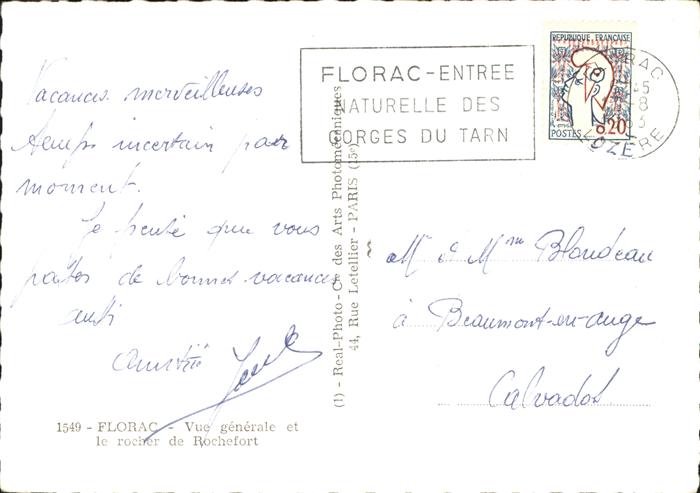 Vacances merveilleuses
temps incertain par
moment.
Je souhaite que vous
faites de bonnes vacances
aussi
Amitiés
1549 - FLORAC - Vue générale et
le rocher de Rochefort
(1) - Real-Photo-Cie des Arts Photomécaniques
44, Rue Letellier - PARIS (15e)
FLORAC-ENTREE
NATURELLE DES
GORGES DU TARN
REPUBLIQUE FRANÇAISE
POSTES 0,20
FLORAC
LOZERE
Mr & Mme Blondeau
à Beaumont-en-auge
Calvados